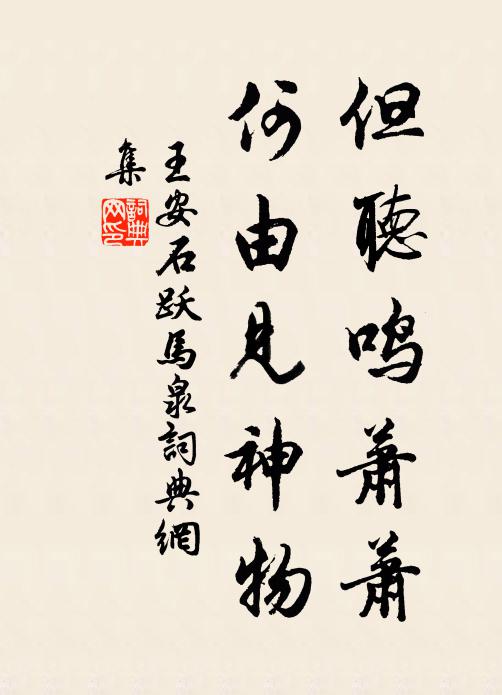 但聽鸣蕭蕭
何由見神物
王安石跃馬泉詞典網
集
詞典
网印